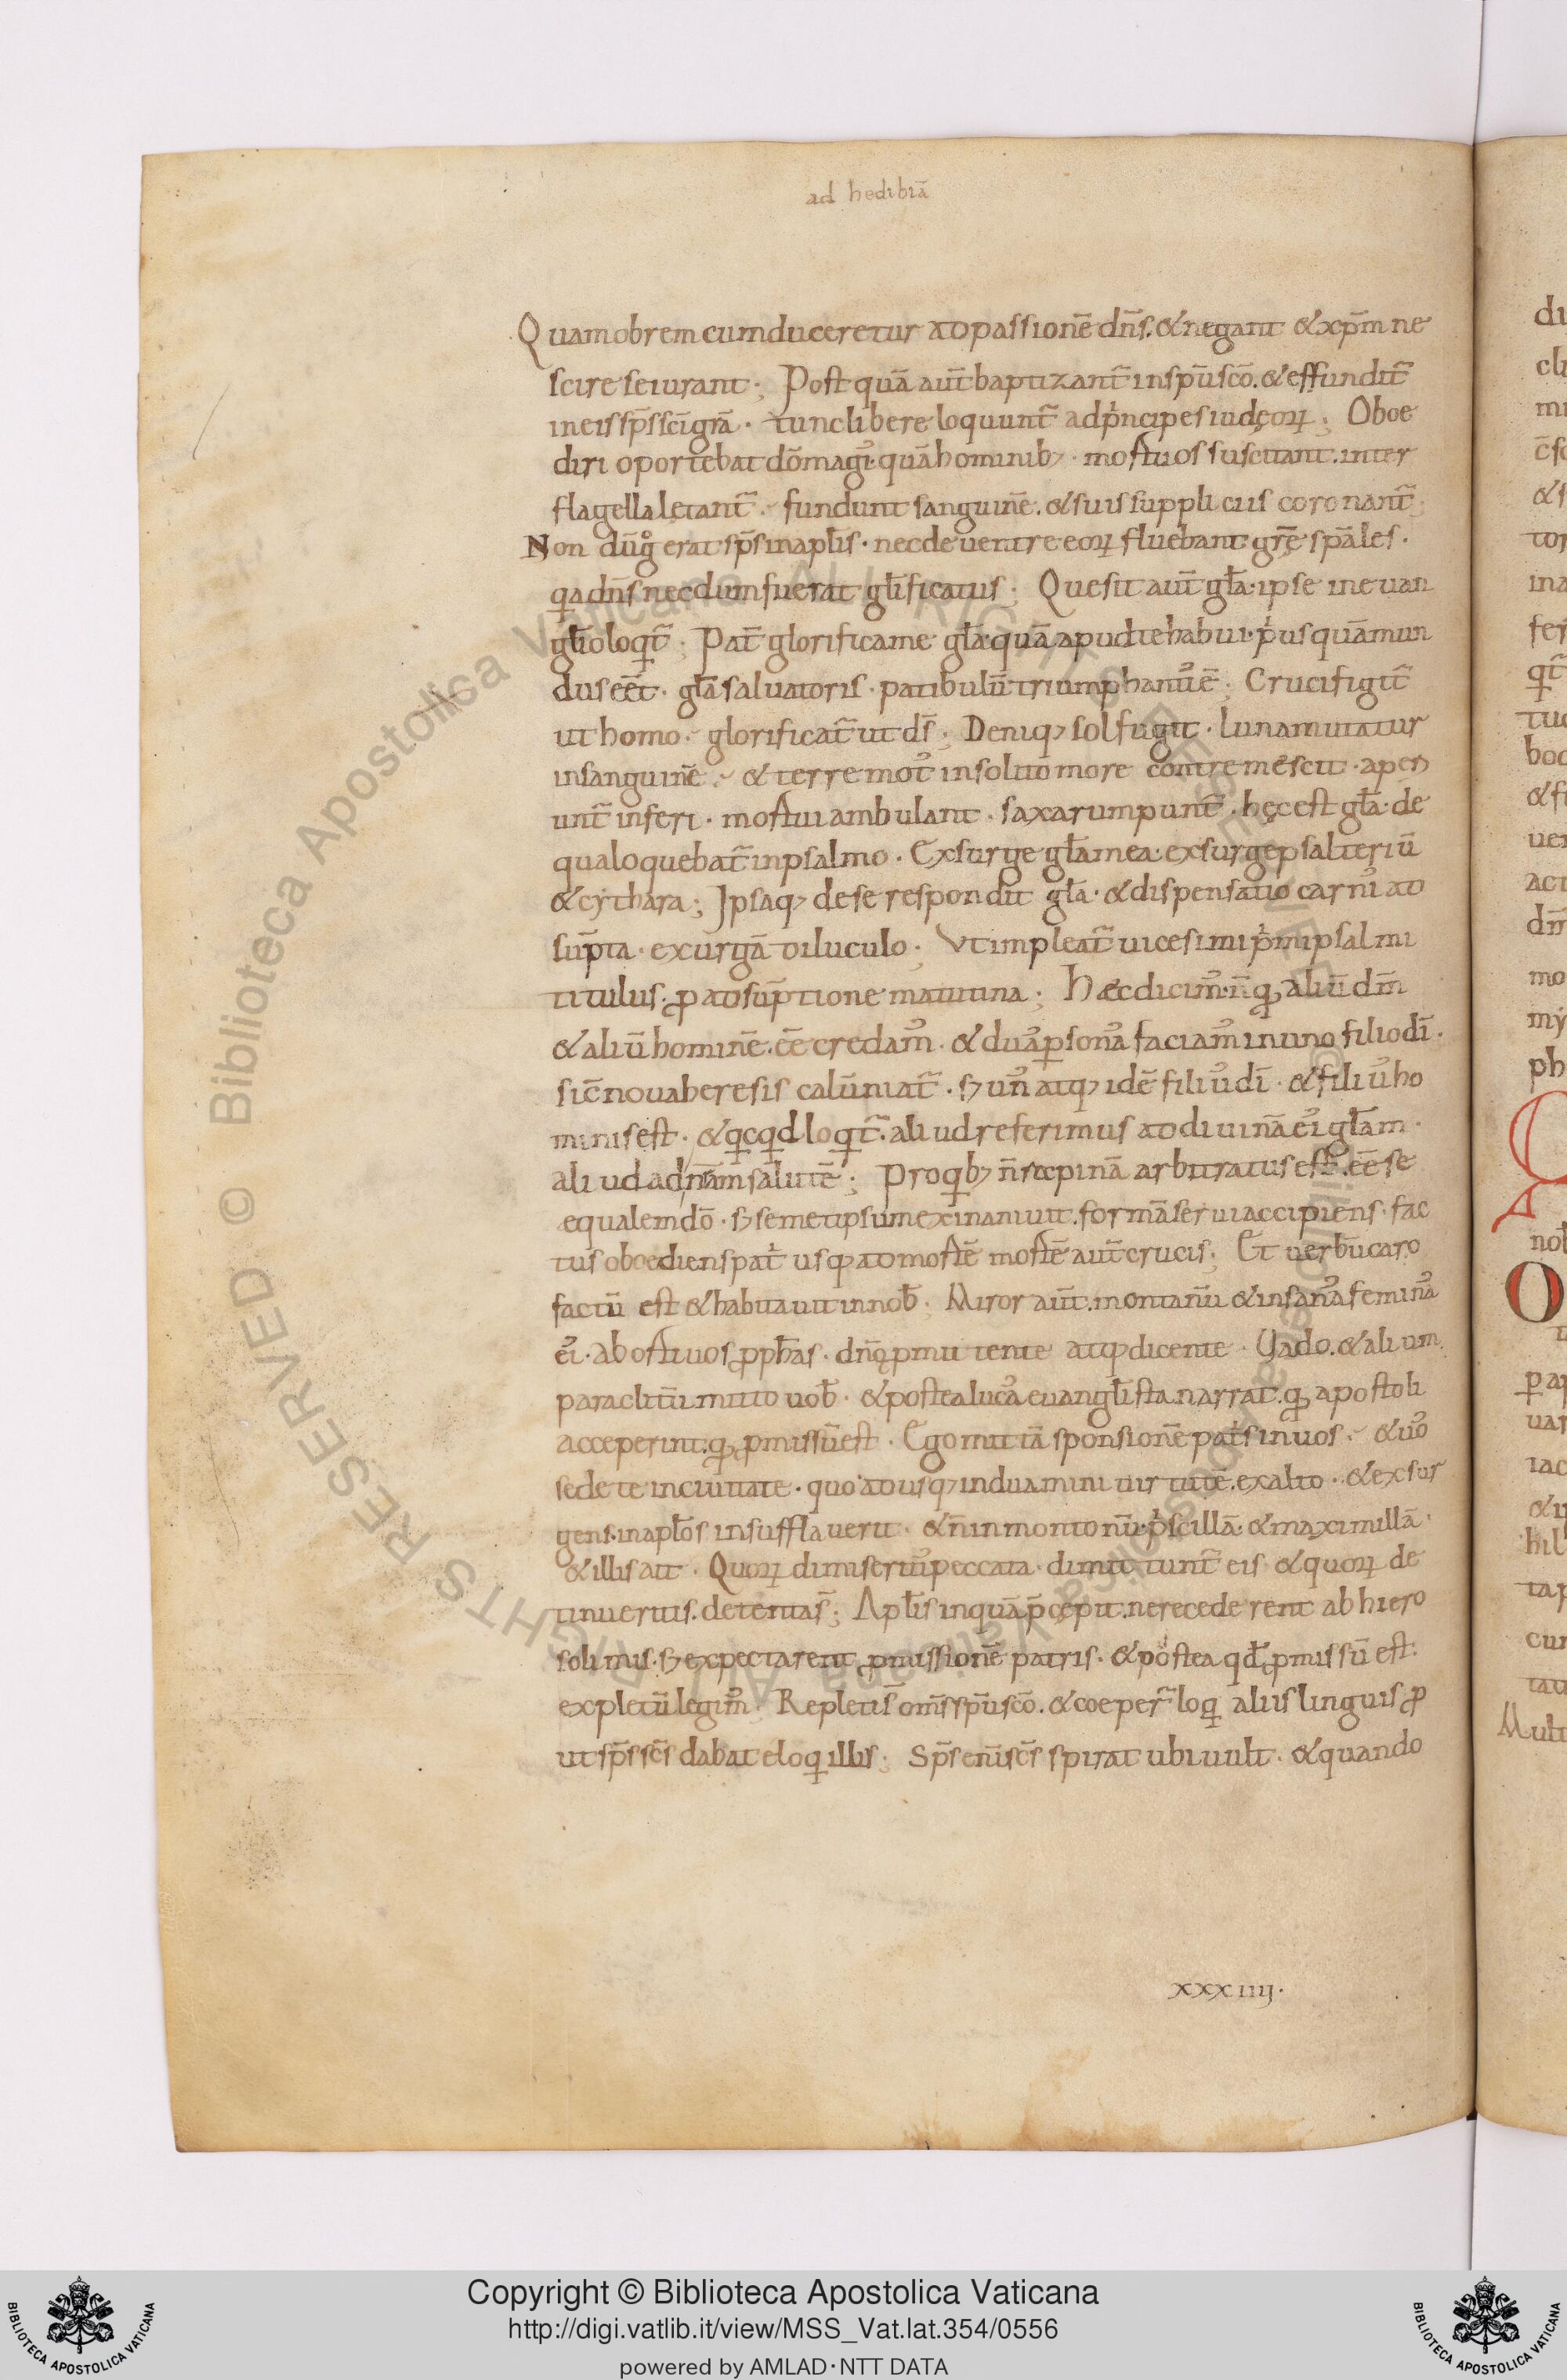 ad hedibiā
Quamobrem cum duceretur ad passionē dn̄s. & negant & xp̄m ne
scire se iurant; Post quā aut̄ baptizant̄ in sp̄u sc̄o. & effundit̄
in eis sp̄s sc̄i gr̄a. tunc libere loquunt̄ ad p̍ncipes iudęoꝝ; Oboe
diri oportebat dō magi᷒ quā hominibꝫ. mortuos suscitant. inter
flagella lętant̄. fundunt sanguinē. & suis suppliciis coronant̄;
Non dū g̊ erat sp̄s in apl̄is. nec de uentre eoꝝ fluebant gr̄ę sp̄ales.
ꝗa dn̄s necdum fuerat gl̄ificatus; Que sit aut̄ gl̄a. ipse in euan
gl̄io loꝗt̄; Pat̄ glorifica me gl̄a quā apud te habui. p̍usquā mun
dus eēt. gl̄a saluatoris. patibulū triumphantı᷒ ē; Crucifigit̄
ut homo. glorificat̄ ut ds̄; Deniqꝫ sol fugit. luna mutatur
in sanguinē. & terre mot᷒ insolito more contremescit. aperi
unt̄ inferi. mortui ambulant. saxa rumpunt̄. hęc est gl̄a. de
qua loquebat̄ in psalmo. Exsurge gl̄a mea. exsurge psalteriū
& cythara; Ipsaqꝫ de se respondit gl̄a. & dispensatio carni᷒ ad
sūpta. exurgā diluculo; Vt impleat̄ uicesimi p̍mi psalmi
titulus. ꝓ adsūptione matutina; Haec dicim᷒. n̄ ꝙ aliū dm̄
& aliū hominē. eē credam᷒. & dua᷒ ꝑsona᷒ faciam᷒ in uno filio dī.
sic̄ noua heresis calūniat̄. sꝫ un᷒ atqꝫ idē filiu᷒ dī. & filiu᷒ ho
minis est. & ꝗcꝗd loꝗt̄. aliud referimus ad diuinā ei᷒ gl̄am.
aliud ad nr̄am salutē; Pro ꝗbꝫ n̄ rapinā arbitratus est. eē se
equalem dō. sꝫ semetipsum exinaniuit. formā serui accipiens. fac
tus oboediens pat̍ usqꝫ ad mortē mortē aut̄ crucis; Et uerbū caro
factū est & habitauit in nob̄; Miror aut̄. montanū & insana᷒ femina᷒
ei᷒. abortiuos ꝓph̄as. dn̄o ꝓmittente atqꝫ dicente. Uado. & alium
paraclitū mitto uob̄. & postea luca᷒ euangl̄ista narrat. ꝙ apostoli
acceperint. ꝙ ꝓmissū est. Ego mittā sponsionē pat̍s in uos. & uo᷒
sedete in ciuitate. quo adusqꝫ induamini uirtutē. ex alto. & exsur
gens. in apl̄os insufflauerit. & n̄ in montonū. p̍scillā. & maximillā.
& illis ait. Quoꝝ dimiseriti᷒ peccata. dimittunt̄ eis. & quoꝝ de
tinueritis. detentas̄; Apl̄is inquā p̄cępit. ne recederent ab hiero
solimis. sꝫ expectarent ꝓmissionē patris. & postea qd̄ ꝓmissū est.
expletū legim᷒. Repletis̄ om̄s sp̄u sc̄o. & coeper̄ loꝗ aliis linguis ꝓ
ut sp̄s sc̄s dabat eloꝗ illis; Sp̄s eni̅ sc̄s spirat ubi uult. & quando
xxxiiij.
© Biblioteca Apostolica Vaticana ALL RIGHTS RESERVED
Copyright © Biblioteca Apostolica Vaticana
http://digi.vatlib.it/view/MSS_Vat.lat.354/0556
powered by AMLAD·NTT DATA
BIBLIOTECA APOSTOLICA VATICANA
BIBLIOTECA APOSTOLICA VATICANA